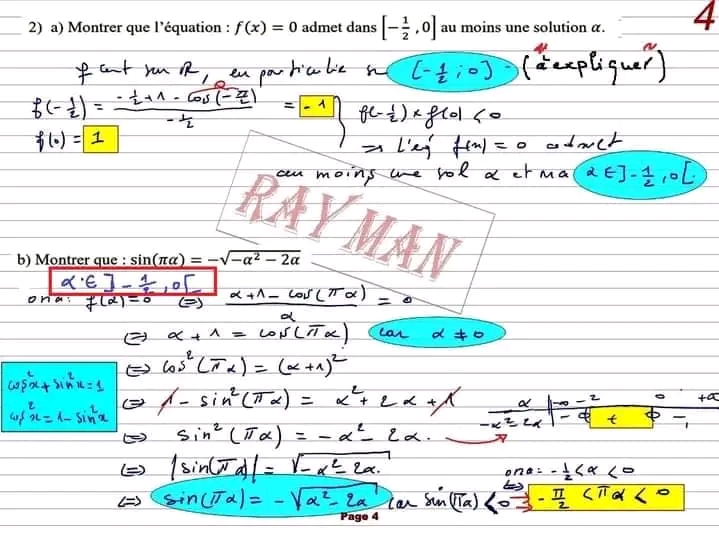 4
2) a) Montrer que l'équation : f(x) = 0 admet dans [-1/2 , 0] au moins une solution α.
f cont sur ℝ, en particulier su [-1/2 ; 0] (à expliquer)
f(-1/2) = (-1/2 + 1 - cos(-π/2)) / (-1/2) = -1
f(0) = 1
f(-1/2) × f(0) < 0
⇒ l'éq f(x) = 0 admet
au moins une sol α et m̄ α ∈ ]-1/2 , 0[.
RAYMAN
b) Montrer que : sin(πα) = -√(-α² - 2α)
α ∈ ]-1/2 , 0[
on a: f(α) = 0 ⇔ (α + 1 - cos(πα)) / α = 0
⇔ α + 1 = cos(πα) car α ≠ 0
⇔ cos²(πα) = (α + 1)²
cos²x + sin²x = 1
cos²x = 1 - sin²x
⇔ 1 - sin²(πα) = α² + 2α + 1
α | -∞ -2 0 +∞
-α² - 2α | - 0 + 0 -
⇔ sin²(πα) = -α² - 2α.
⇔ |sin(πα)| = √(-α² - 2α)
on a: -1/2 < α < 0
⇔ sin(πα) = -√(α² - 2α) car sin(πα) < 0
⇔ -π/2 < πα < 0
Page 4